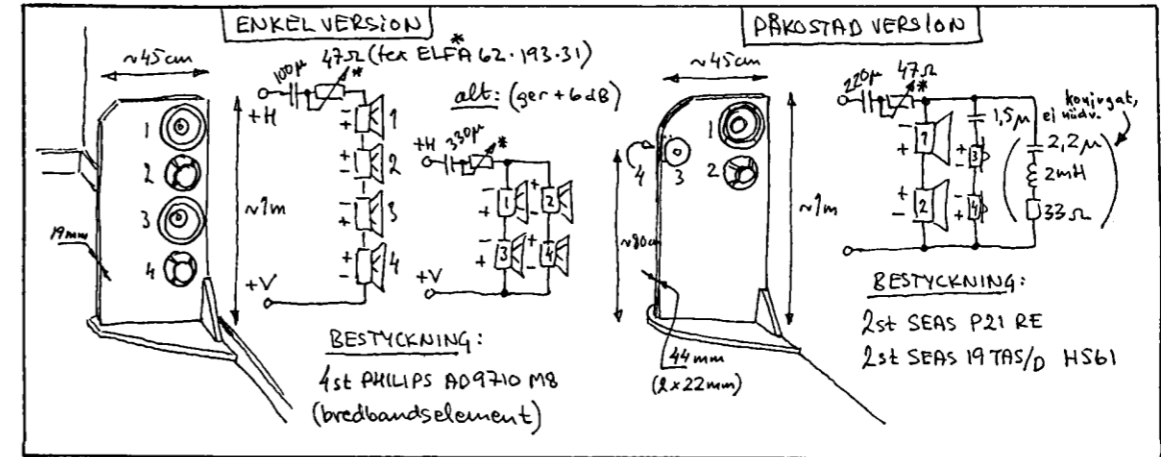 ENKEL VERSION
~45cm
1
2
3
4
19mm
~1m
100µ
47Ω (tex ELFA 62·193·31)
*
*
+H
- + 1
- + 2
- + 3
+ - 4
+V
alt: (ger +6dB)
+H
330µ
*
- + 1
+ - 2
- + 3
+ - 4
+V
BESTYCKNING:
4st PHILIPS AD9710 M8
(bredbandselement)
PÅKOSTAD VERSION
~45cm
1
2
3
4
~80cm
~1m
44mm
(2x22mm)
220µ
47Ω
*
- + 1
+ - 2
1,5µ
3
4
konjugat,
ej nödv.
2,2µ
2mH
33Ω
BESTYCKNING:
2st SEAS P21 RE
2st SEAS 19 TAS/D H561